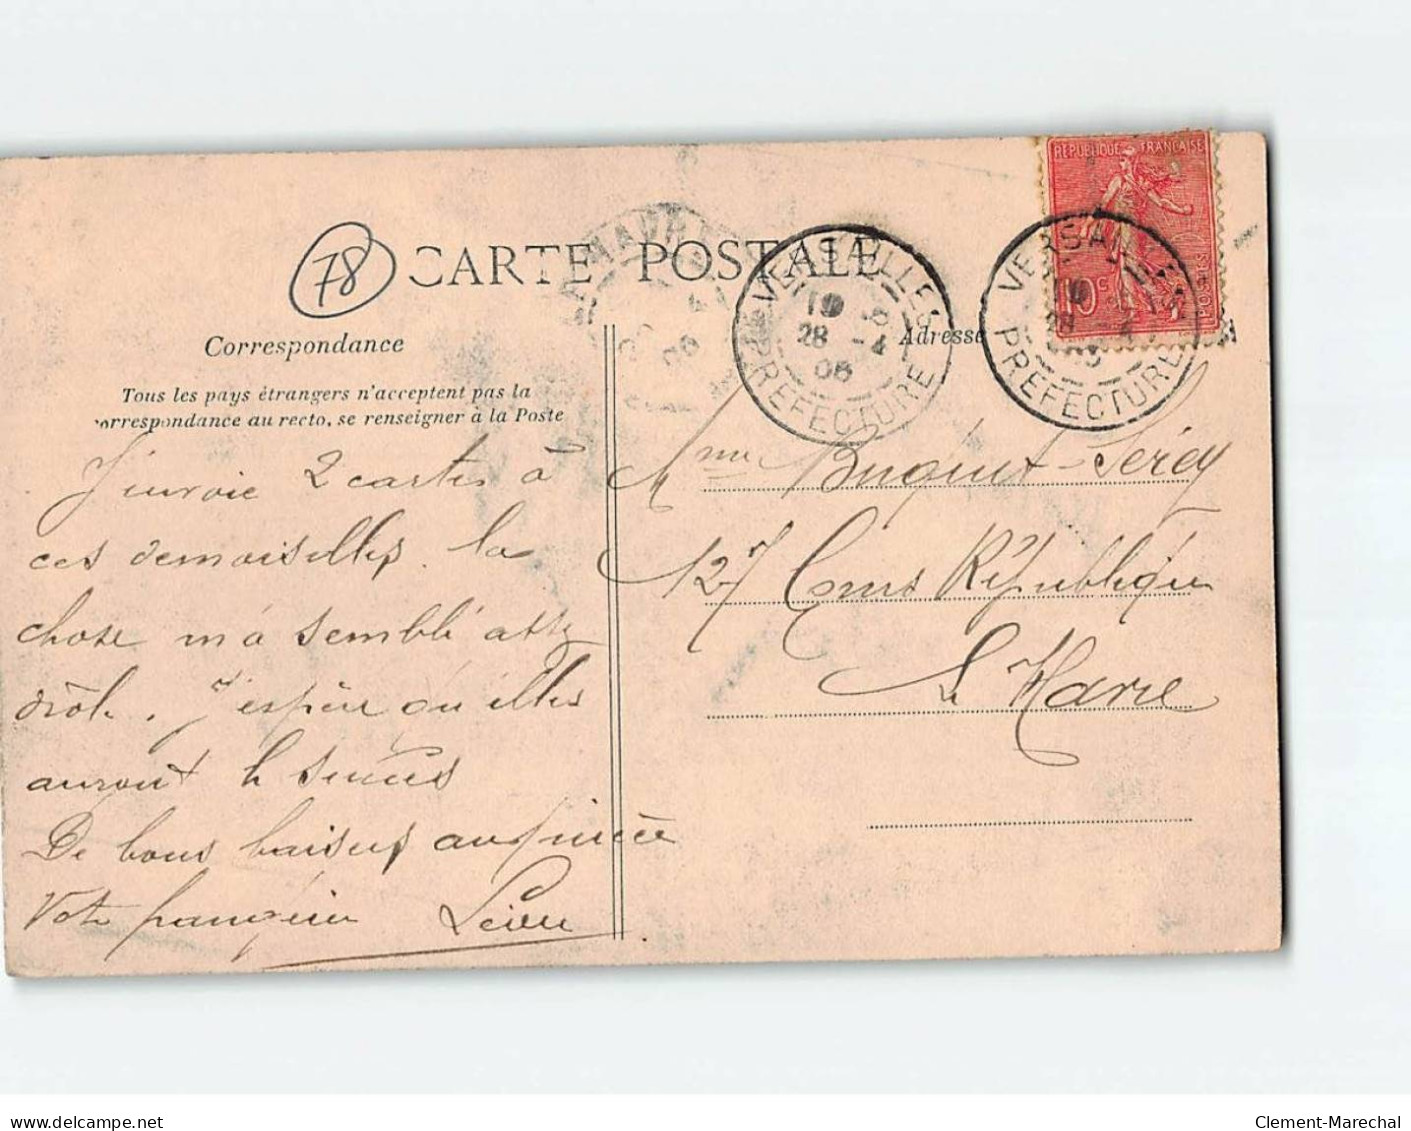 78
CARTE POSTALE
Correspondance
Tous les pays étrangers n'acceptent pas la
correspondance au recto, se renseigner à la Poste
J'envoie 2 cartes à
ces demoiselles. la
chose m'a semblé assez
drôle. J'espère qu'elles
auront le succès
De bons baisers au
Votre
REPUBLIQUE FRANÇAISE
10 c
POSTES
VERSAILLES
19
28 -4
06
PREFECTURE
VERSAILLES
19
28 -4
PREFECTURE
Adresse
Mme
127 Cours République
Le Havre
Clement-Marechal